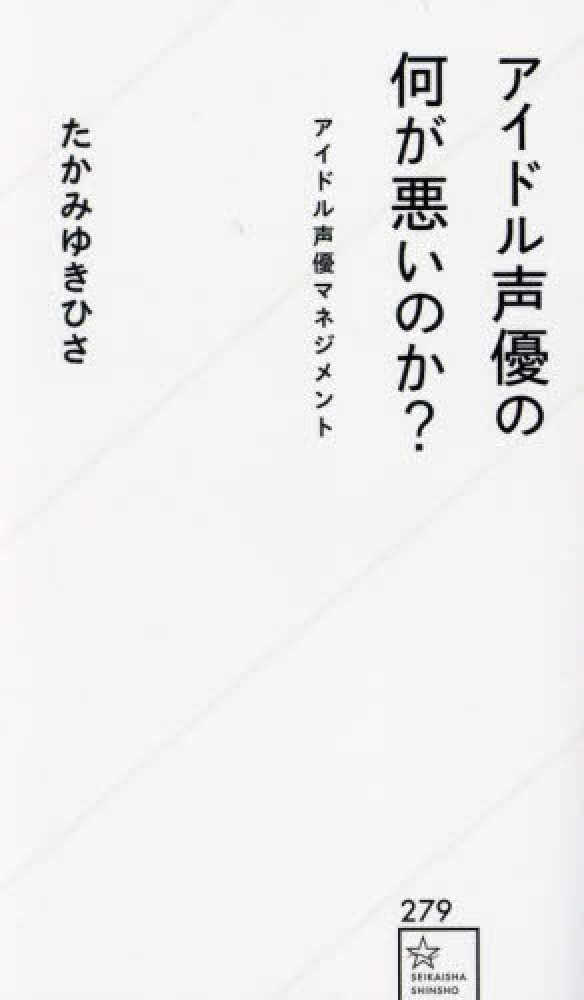 アイドル声優の
何が悪いのか?
アイドル声優マネジメント
たかみゆきひさ
279
SEIKAISHA
SHINSHO